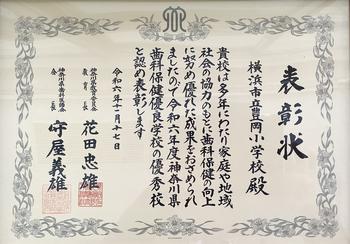 表彰状
横浜市立豊岡小学校殿
貴校は多年にわたり家庭や地域
社会の協力のもとに歯科保健の向上
に努め優れた成果をおさめられ
ましたので令和六年度神奈川県
歯科保健優良学校の優秀校
と認め表彰します
令和六年十月十七日
神奈川県教育委員会
教育長
花田忠雄
神奈川県歯科医師会
会長
守屋義雄